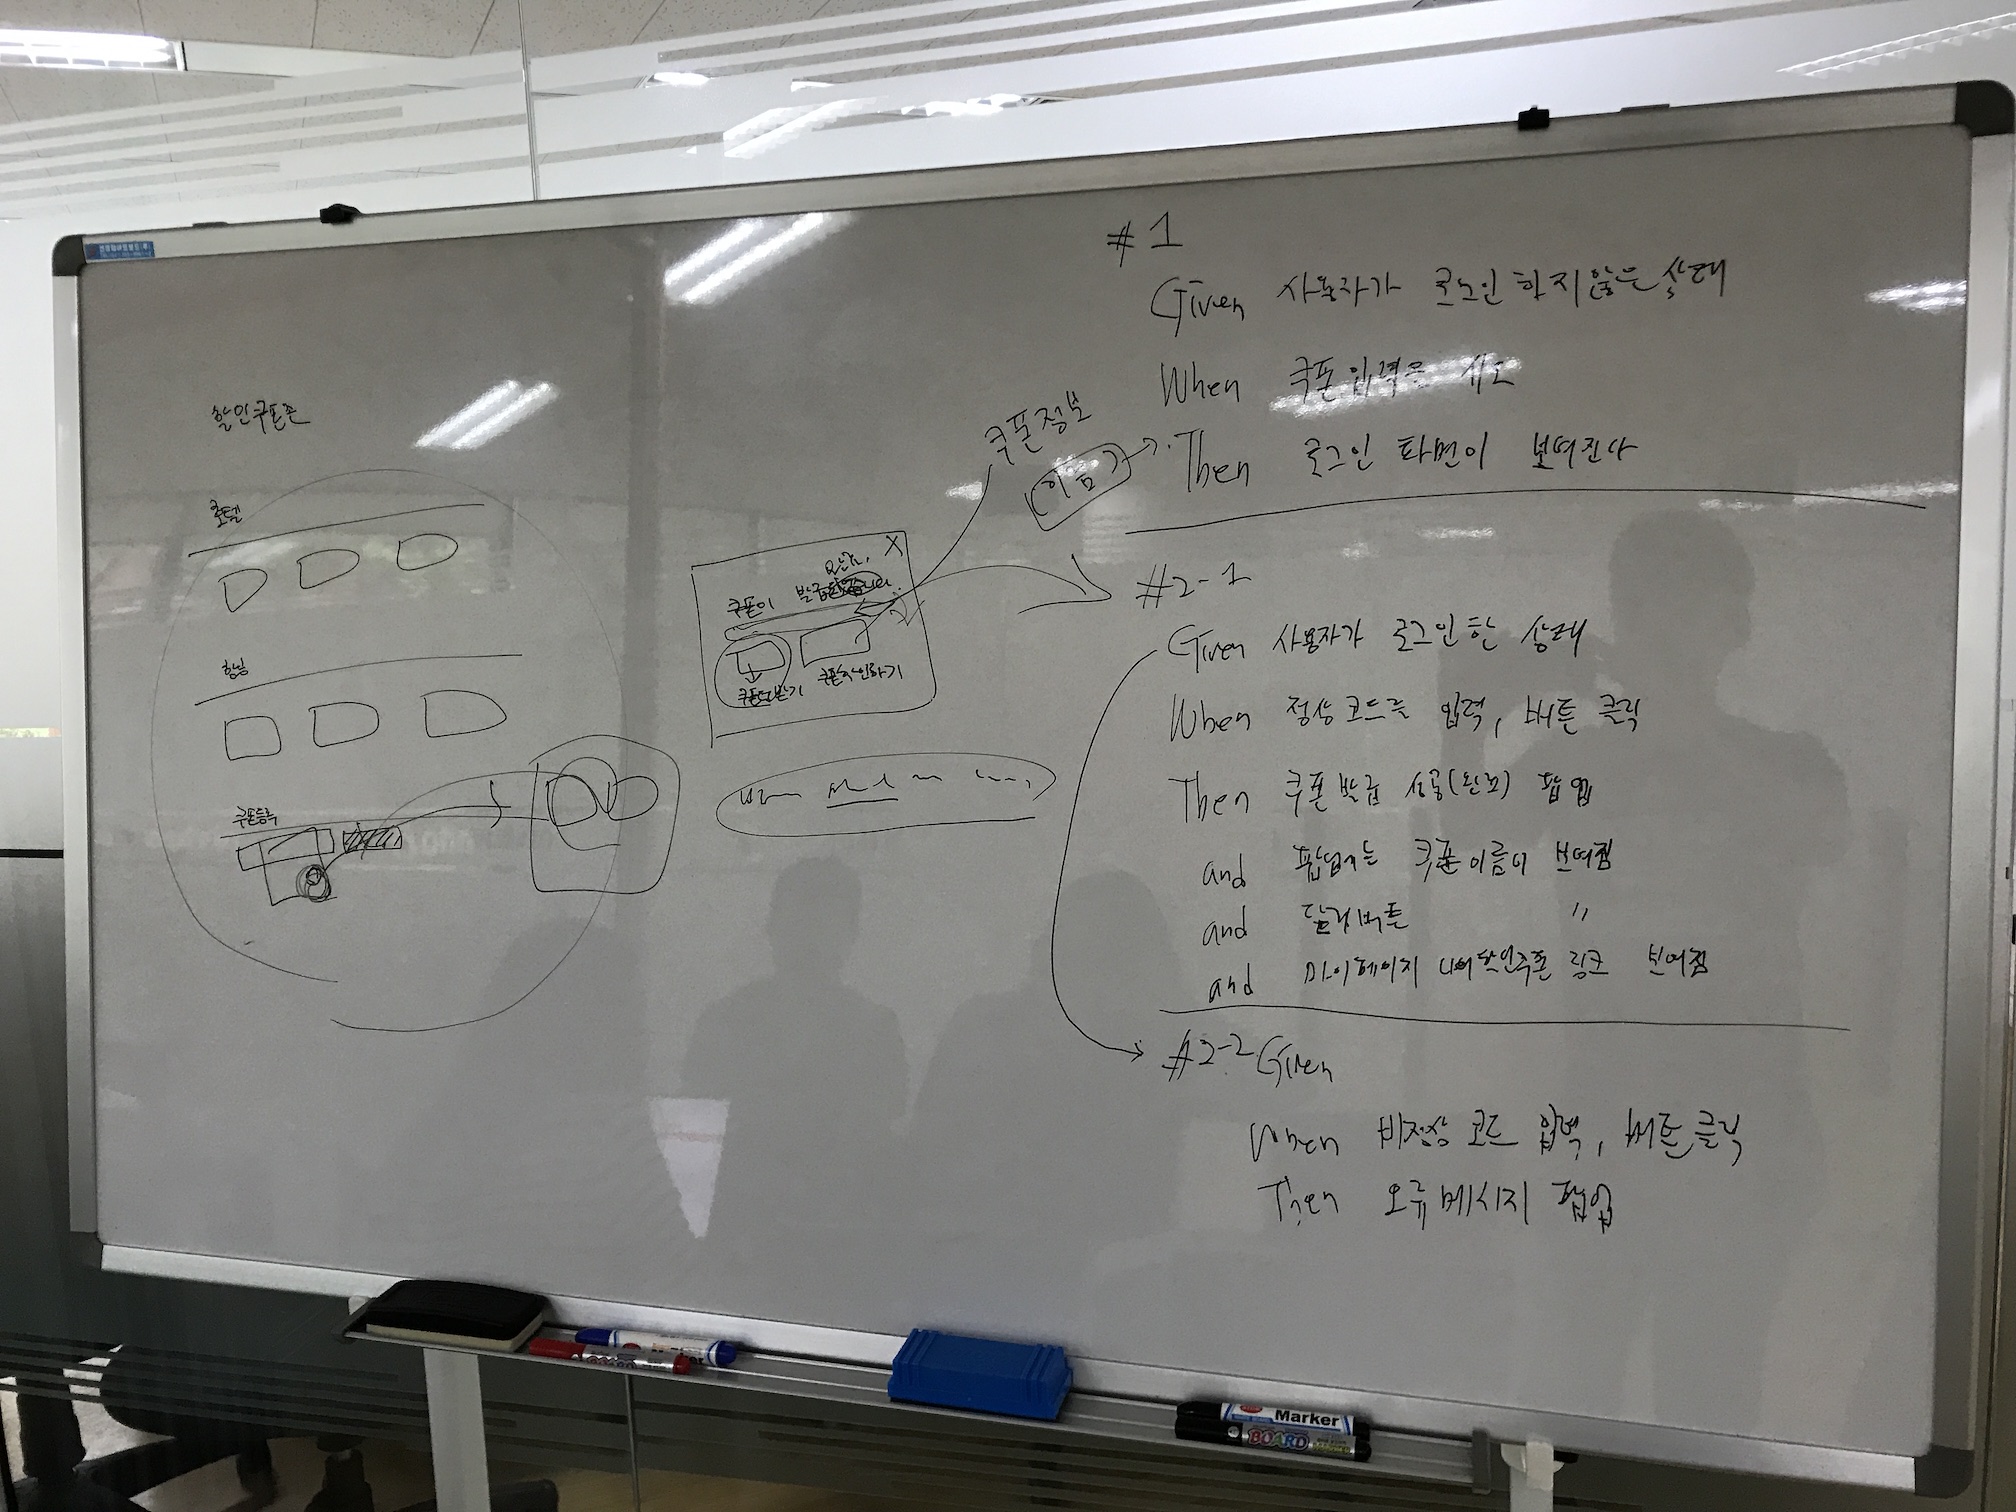 할인쿠폰존
호텔
항공
쿠폰등록
쿠폰이 발급
완료
X
쿠폰 더 받기
쿠폰확인하기
쿠폰정보
이름
#1
Given 사용자가 로그인 하지 않은 상태
When 쿠폰입력을 시도
Then 로그인 화면이 보여진다
#2-1
Given 사용자가 로그인한 상태
When 정상코드를 입력, 버튼 클릭
Then 쿠폰발급 성공(완료) 팝업
and 팝업에는 쿠폰이름이 보여짐
and 닫기버튼 "
and 마이페이지 나의할인쿠폰 링크 보여짐
#2-2 Given
When 비정상 코드 입력, 버튼 클릭
Then 오류메시지 팝업
Marker
BOARD